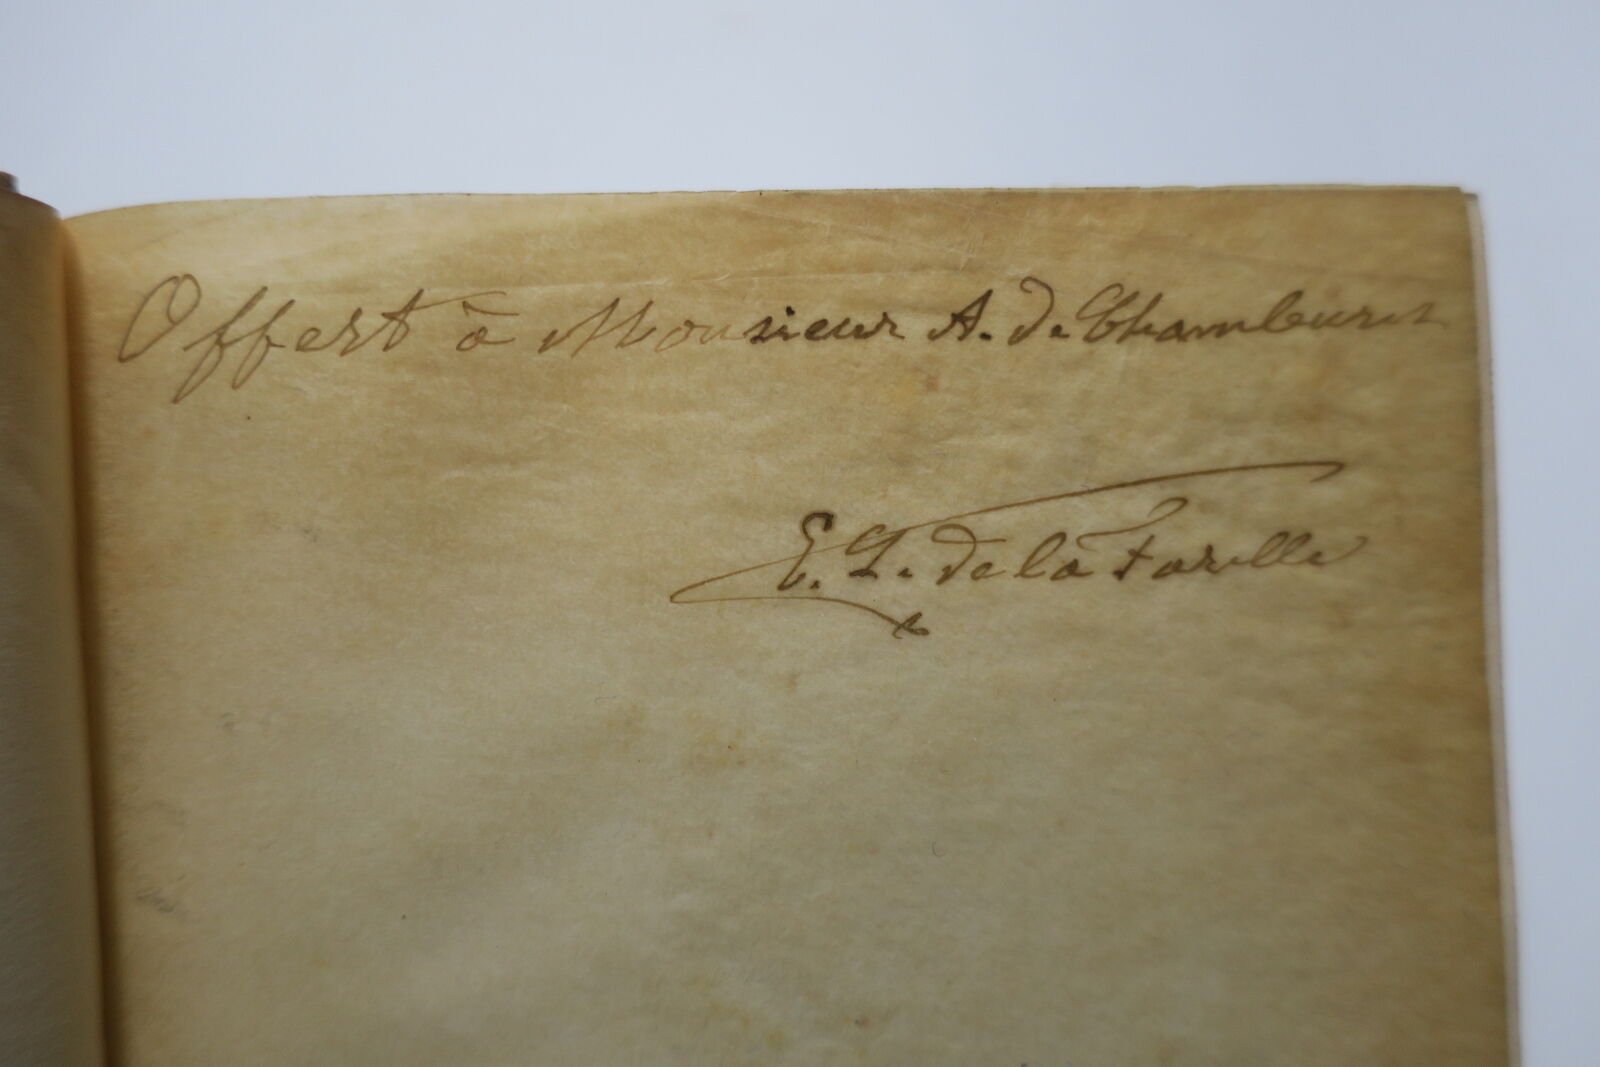 Offert à Monsieur A. de Chamberet
E. G. de la Farelle